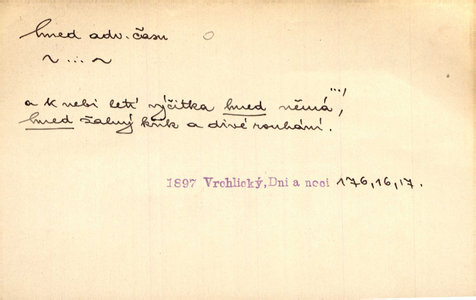 hned adv. času
~ ... ~
a k nebi letí výčitka hned němá, ...,
hned šalný křik a divé rouhání.
1897 Vrchlický, Dni a noci 176, 16, 17.